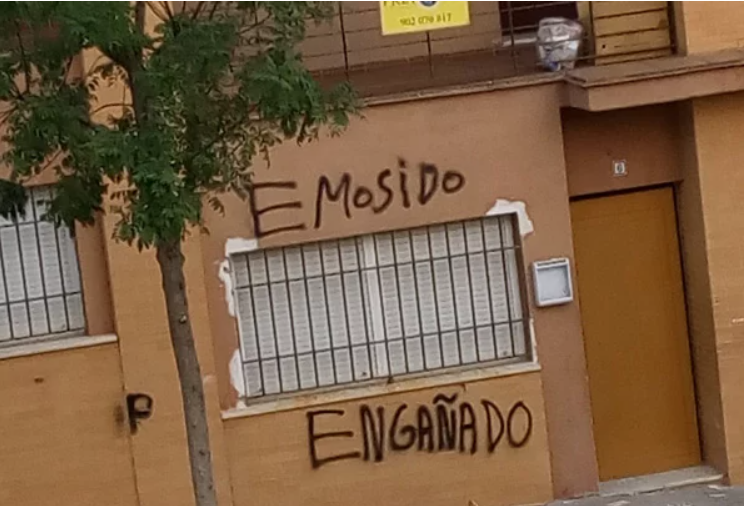 902 070 817
E MOSiDO
6
P
ENGAÑADO